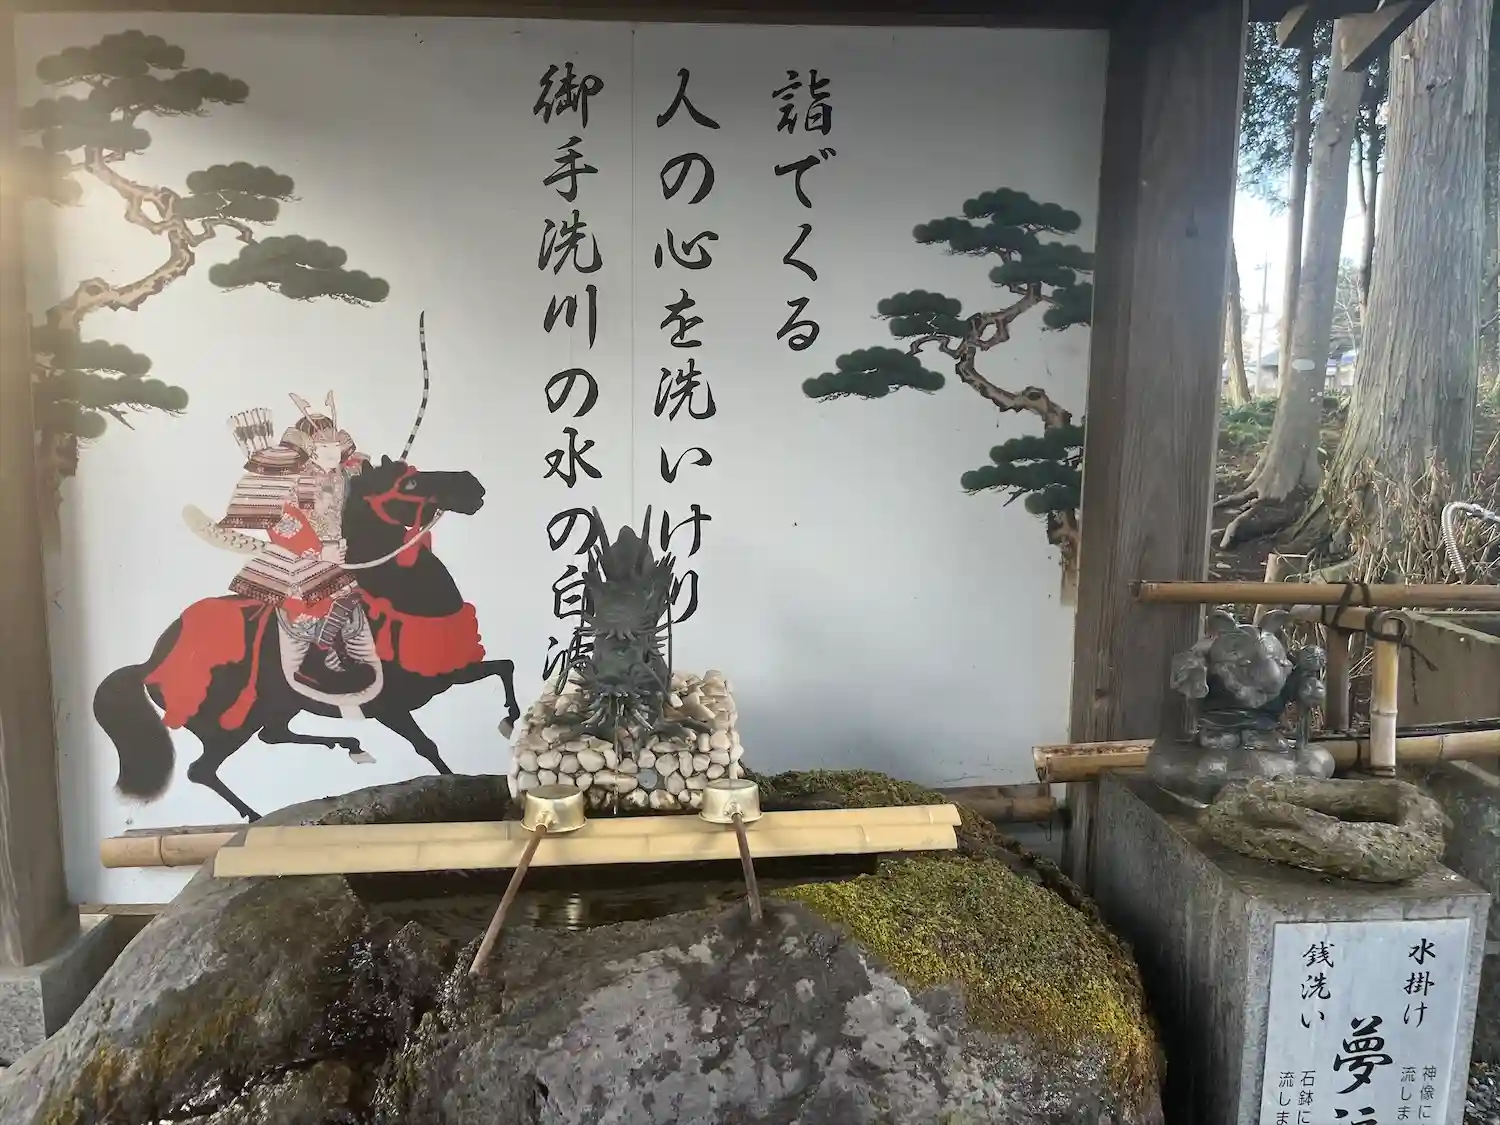 詣でくる
人の心を洗いけり
御手洗川の水の白波
水掛け
銭洗い
夢
神像に
流しま
石鉢に
流しま